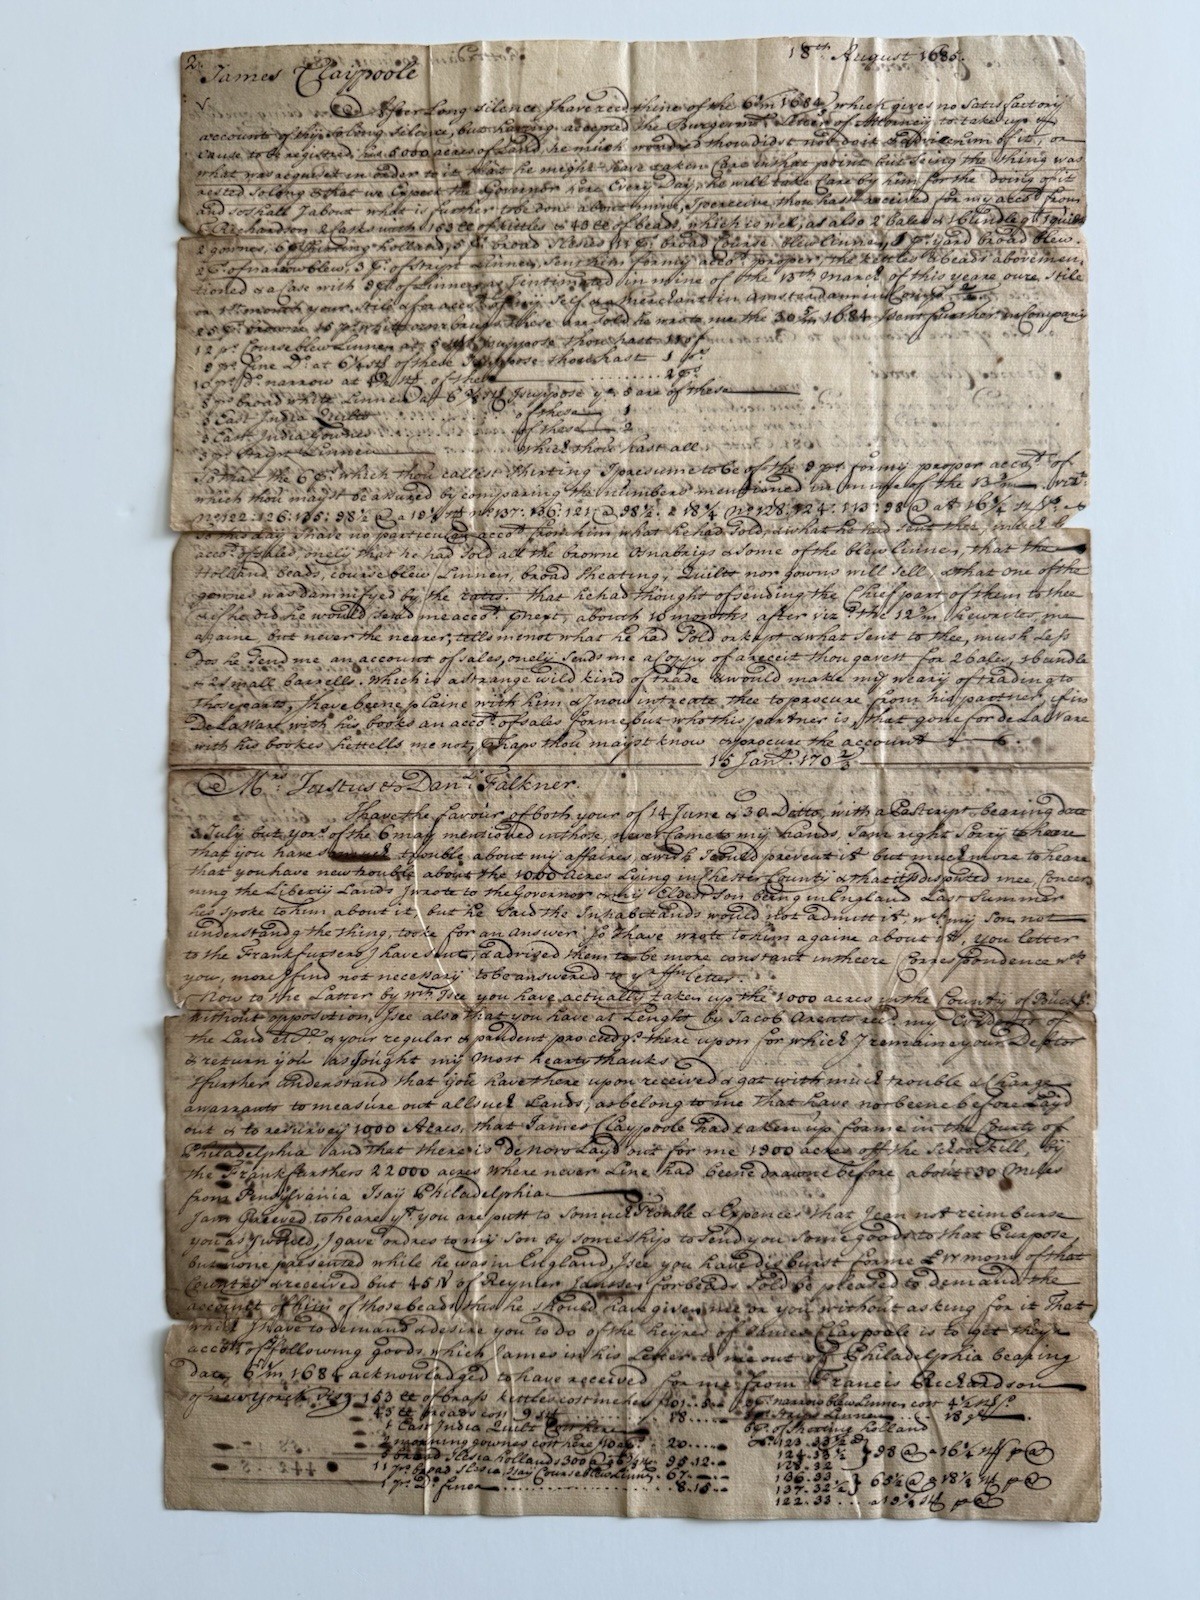 2.
18th August 1685.
James Claypoole
After Long silence I have recd thine of the 6/m 1684 which gives no satisfactory
account of thy so Long silence, but having accepted the Burgermrs Letter of Attorney to take up &
cause to be registred, his 5000 acres of Land, he much wonders thou didst not do it & advise him of it, or
what was requisit in order to it that he might have taken Care in that point but seeing the thing was
rested so long & that we expect the Governor here Every Day, he will take Care by him for the doing of it
and so shall I about what is further to be done about mine, I perceive thou hast received for my acct from
F Richardson 2 Casks with 153 tt of kettles & 43 tt of beads, which is wel, as also 2 bales & 1 bundle 1 quilt
2 gownes, 6 ps sheating holland, 5 ps broad Slesies, 11 ps broad Course blew linnen, 1 ps yard broad blew.
2 ps of narrow blew, 3 ps of stript Linnen, I sent him for my acct proper, the kettles & beads abovemen
tioned & a Case with 9 ps of Linnen as I intimated in mine of the 13th March of this yeare oure stile
or 1st month your stile & for acct of my self & a merchant in Amstradam in Comp
25 ps browne 15 ps white osnabrugs, these are sold he wrote me the 30 1684 I sent further in Company
12 ps Course blew Linnen at 5 I suppose thou hast 11 ps
9 ps fine Do at 6¼ st of these I suppose thou hast 1 ps
10 ps Do narrow at 4½ st of these 2 ps
8 ps broad white Linnen at 6 I suppose ye 5 are of these
3 East India Quilts of these 1
3 East India Gownes of these 2
3 ps stript Linnen which thou hast all
So that the 6 ps which thou callest shirting I presume to be of the 9 ps for my proper acct of
which thou mayst be assured by comparing the numbers mentioned in mine of the 13/m vizt
No 122: 126: 135: 98½ @ a 19½ st no 137: 136: 121 @ 98½ a 18¼ No 128: 124: 113: 98 @ at 16¼ st
to this day I have no particular acct from him what he had sold, & what he had sent thee, indeed
acct of sales, onely that he had sold all the browne Osnabrigs & some of the blew linnen, that the
Holland beads, course blew Linnen, broad sheating, Quilts nor gowns will sell, & that one of the
gownes was damnifyed by the ratts. that he had thought of sending the Chief part of them to thee
& if he did he would send me acct P next, about 10 months after vizt the 12/m he writes me
againe, but never the nearer, tells me not what he had sold or kept & what sent to thee, much less
Dos he send me an account of sales, onely sends me a Coppy of a receit thou gavest for 2 bales, 1 bundle
& 2 small barrells. Which is a strange wild kind of trade & would make my weary of trading to
those parts, I have beene plaine with him & I now intreate thee to procure from his partner, if in
DelaWare with his books an acct of sales for me but who this partner is, that gone for de LaWare
with his bookes he tells me not, Phaps thou mayst know & procure the account
15 Jany 170 2/3
Mrs Justus & Danl Falkner.
I have the favour of both your of 14 June & 30 Ditto with a Postcript bearing date
3 July but yor of the 6 may mentioned in those, never Came to my hands, I am right sorry to heare
that you have trouble about my affaires, & wish I could prevent it but much more to heare
that you have new trouble about the 1000 acres Lying in Chester County & that it is disputed mee, Concer
ning the Liberty Lands I wrote to the Governor & my Eldest son being in England Last Summer
hes spoke to him about it, but he said the Inhabetands would not admitt it, wch my son not
understandg the thing, tooke for an answer so I have wrote to him againe about it, you letter
to the Frankfurters I have sent, & advised them to be more constant in theere Correspondence wth
you, more I find not necessary to be answered to yr ffirst letter
Now to the Latter by wch I see you have actually taken up the 1000 acres in the County of Bucks
without opposition, I see also that you have at Lenght by Jacob Arents recd my Evidences of
the Land etc & your regular & prudent proceedgs there upon for which I remaine your Debtor
& return you as I ought my most hearty thanks
I further Understand that you have there upon received & gat with much trouble & Charge
awarrants to measure out all such Lands, as belong to me that have not beene before Layd
out & to resurvey 1000 Acres, that James Claypoole had taken up for me in the County of
Philadelphia and that there is de novo Layd out for me 1900 acres off the Schoolkill, by
the Frankfurthers 22000 acres where never Line had beene drawne before about 30 Miles
from Pensylvania I say Philadelphia
I am Greeved to heare yt you are putt to so much Trouble & Expences that I can not reimburse
you as I would, I gave ordres to my son by some ship to send you some goods to that Purpose,
but none presented while he was in England, I see you have disburst for me mony of that
Country & received but 45 of Reynier Janssen for beads sold be pleased to demand the
account of him of those beads thus he should have given me or you without asking for it That
which I have to demand & desire you to do of the heyres of James Claypoole is to get theyr
acct of following goods which James in his Letter to me out of Philadelphia bearing
date 6/m 1684 acknowladged to have received for me from Francis Richardson
of new Yorck viz 153 tt of brass kettles cost me here f101 .. 5
43 tt beads cost 9 st 18
1 East India Quilt Cost here
2 morning gownes cost here 10 a ps 20
5 broad Slesia hollands 300 @ 95.12
11 ps broad Slesia Say Course blew Linnen 67
1 ps Do finer 8.15
2 ps narrow blew Linnen cost 4½ st
3 ps stript Linnen 18
6 ps of Shirting holland
No 123. 33½ @
124. 33½
128. 32 } 98 @ a 16¼ st p @
136. 33
137. 32½ } 65½ @ a 18¼ st p @
122. 33 a 19½ st p @